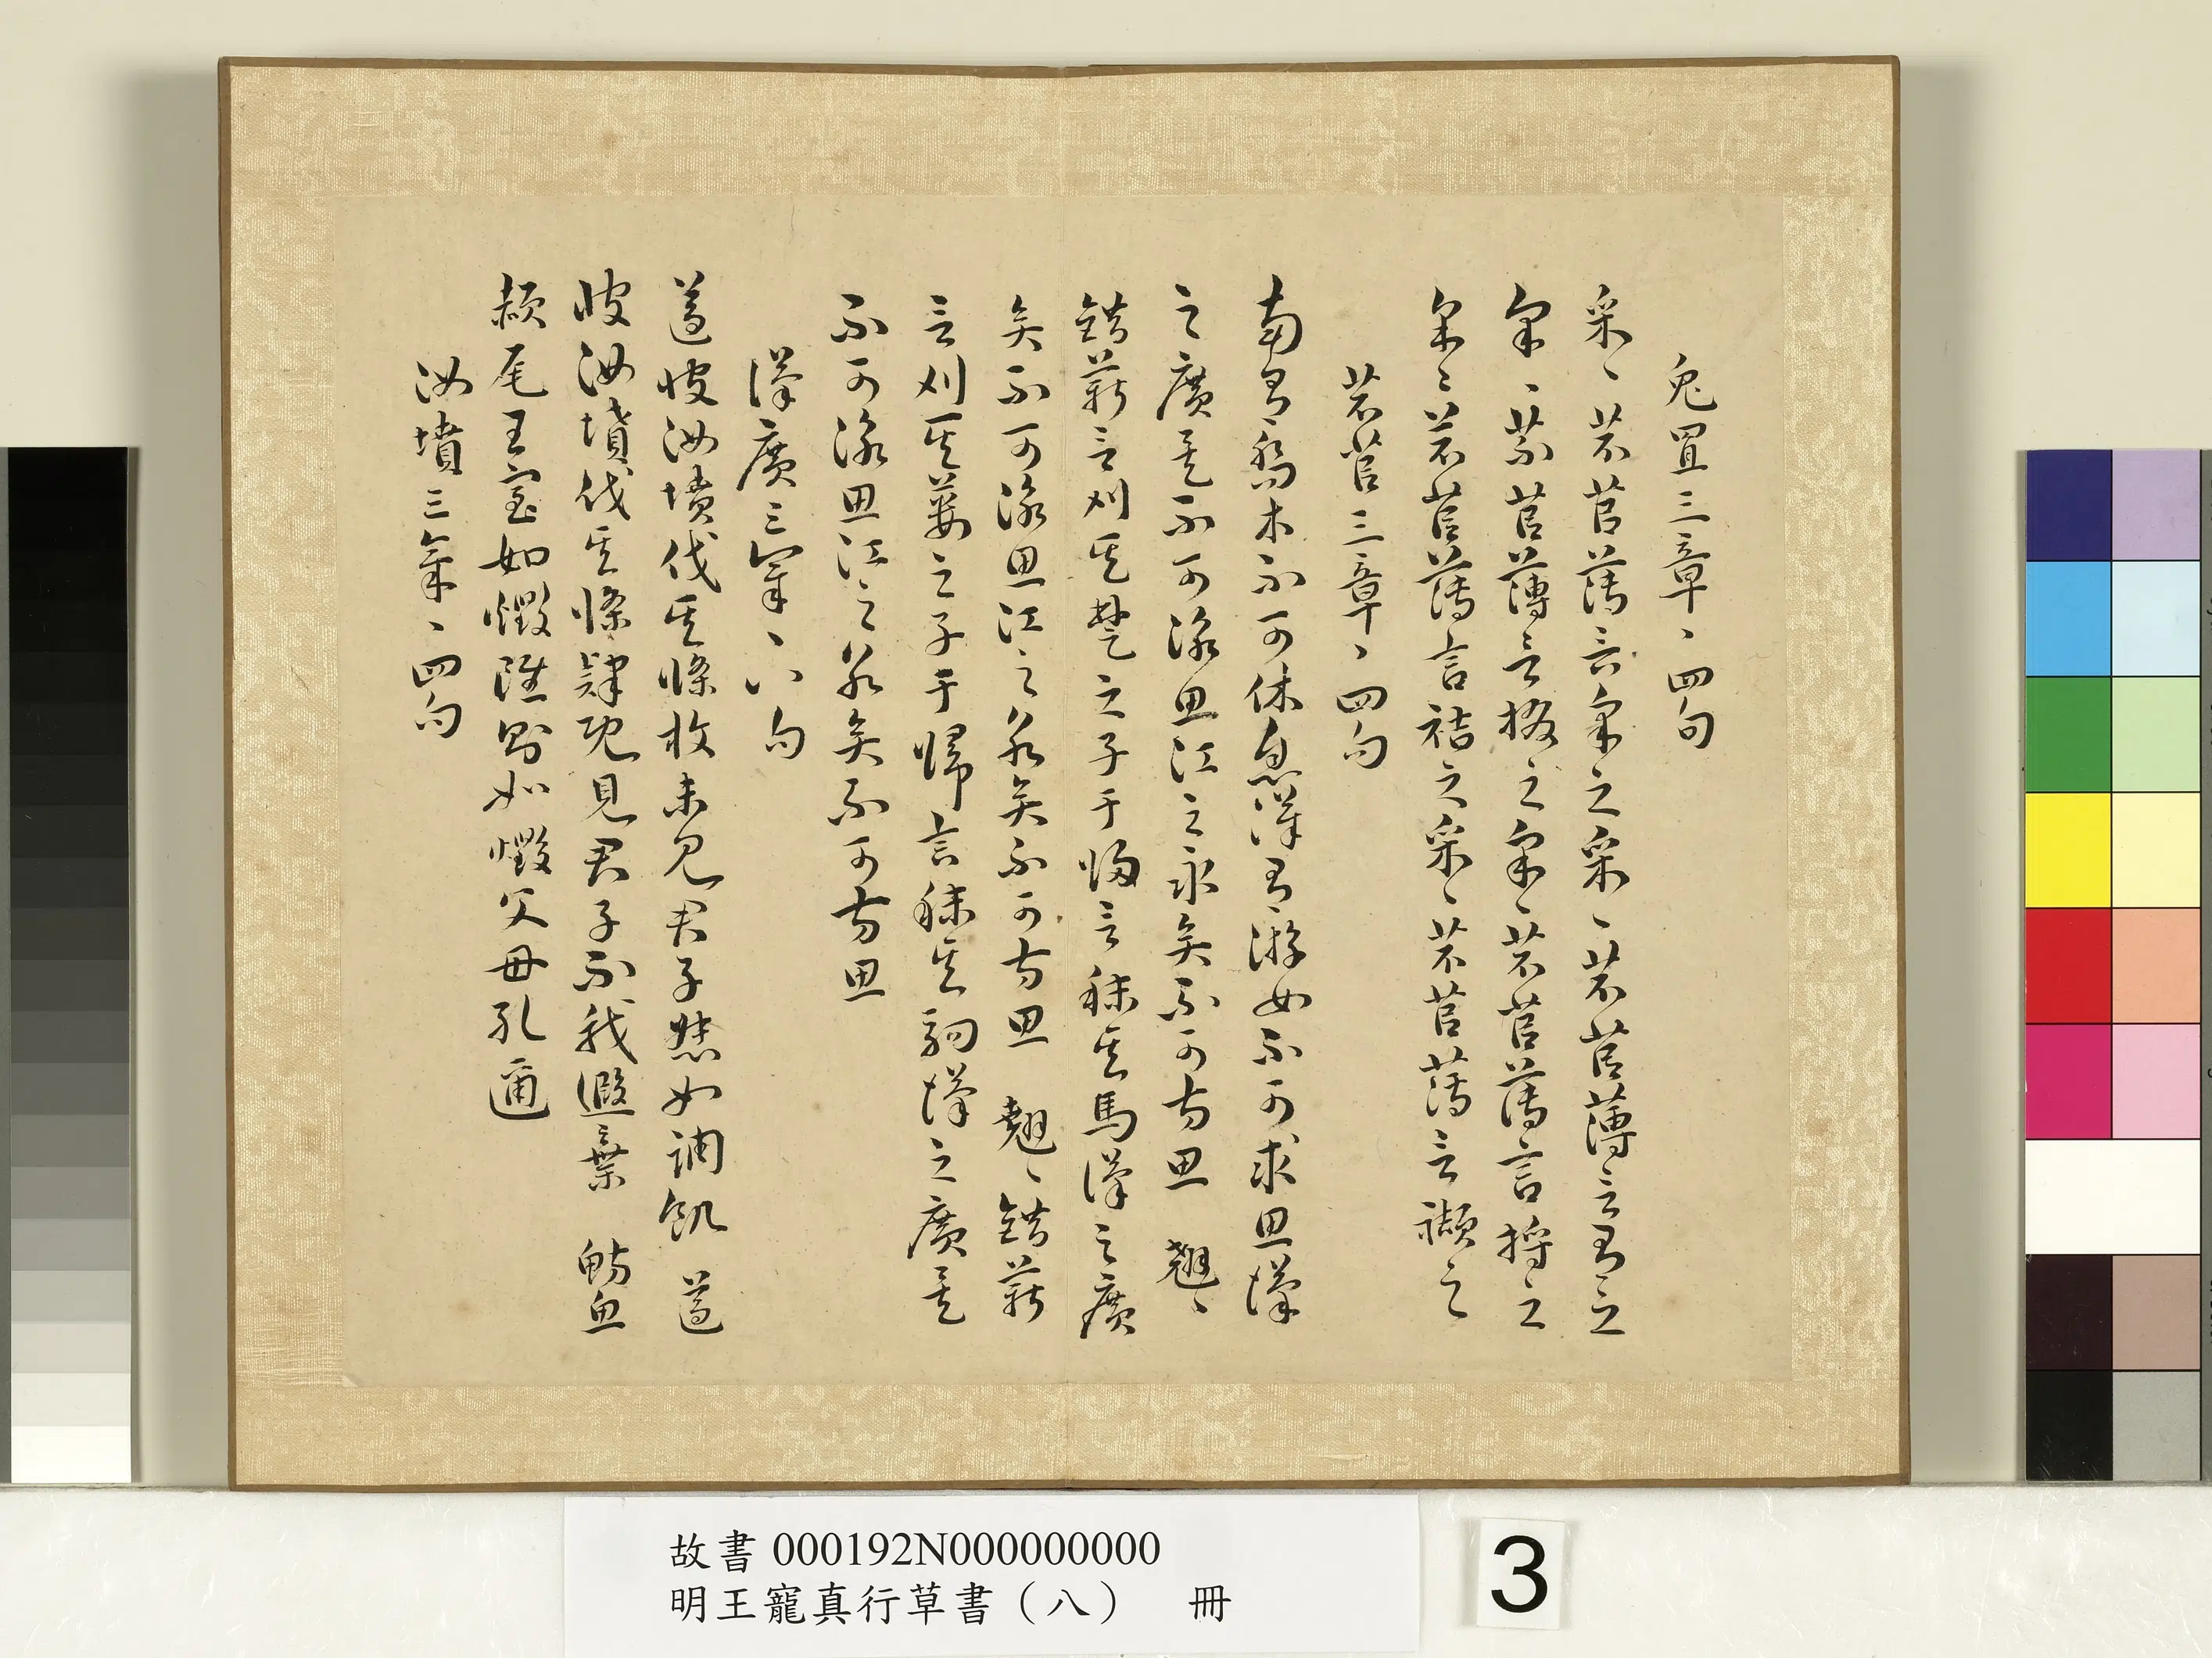 兔罝三章、四句
采、芣苢薄言采之采、芣苢薄言有之
采、芣苢薄言掇之采、芣苢薄言捋之
采〻芣苢薄言袺之采、芣苢薄言襭之
芣苢三章、四句
南有喬木不可休息漢有游女不可求思漢
之廣矣不可泳思江之永矣不可方思　翹、
錯薪言刈其楚之子于歸言秣其馬漢之廣
矣不可泳思江之永矣不可方思　翹、錯薪
言刈其蔞之子于歸言秣其駒漢之廣矣
不可泳思江之永矣不可方思
漢廣三章、八句
遵彼汝墳伐其條枚未見君子惄如調飢　遵
彼汝墳伐其條肄既見君子不我遐棄　魴魚
赬尾王室如燬雖則如燬父母孔邇
汝墳三章、四句
故書 000192N000000000
明王寵真行草書（八）　冊
3